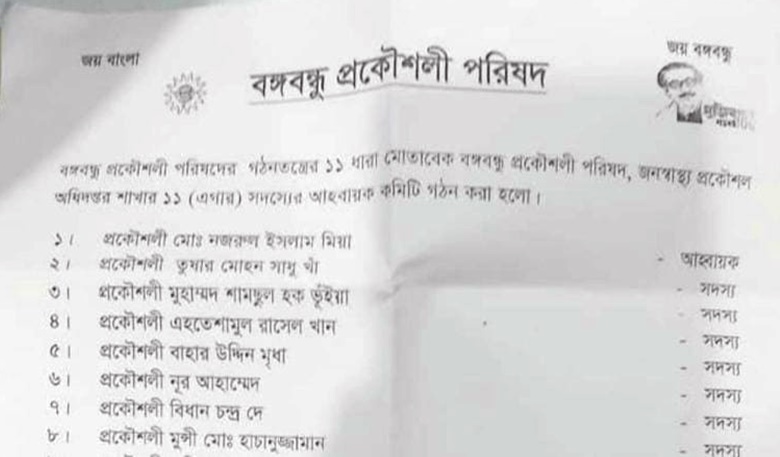 জয় বাংলা
জয় বঙ্গবন্ধু
বঙ্গবন্ধু প্রকৌশলী পরিষদ
মুজিব
বঙ্গবন্ধু প্রকৌশলী পরিষদের গঠনতন্ত্রের ১১ ধারা মোতাবেক বঙ্গবন্ধু প্রকৌশলী পরিষদ, জনস্বাস্থ্য প্রকৌশল
অধিদপ্তর শাখার ১১ (এগার) সদস্যের আহবায়ক কমিটি গঠন করা হলো।
১। প্রকৌশলী মোঃ নজরুল ইসলাম মিয়া - আহবায়ক
২। প্রকৌশলী তুষার মোহন সাধু খাঁ - সদস্য
৩। প্রকৌশলী মুহাম্মদ শামছুল হক ভূঁইয়া - সদস্য
৪। প্রকৌশলী এহতেশামুল রাসেল খান - সদস্য
৫। প্রকৌশলী বাহার উদ্দিন মৃধা - সদস্য
৬। প্রকৌশলী নূর আহাম্মেদ - সদস্য
৭। প্রকৌশলী বিধান চন্দ্র দে - সদস্য
৮। প্রকৌশলী মুন্সী মোঃ হাচানুজ্জামান - সদস্য